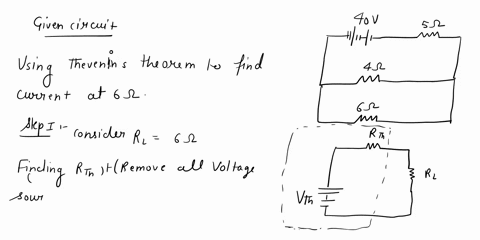 Given circuit
Using Thevenin's theorem to find
current at 6Ω.
Step I :- consider RL = 6Ω
Finding RTh :- (Remove all Voltage
sour
40V
5Ω
4Ω
6Ω
RTh
VTh
RL